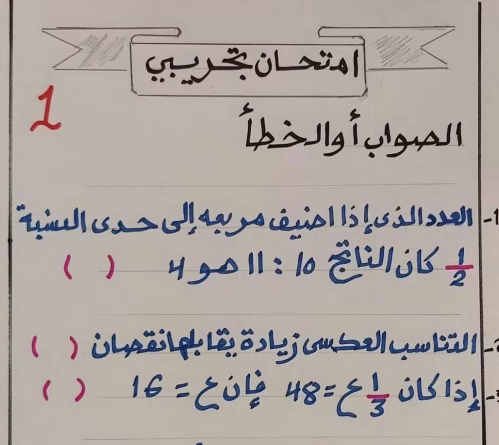 امتحان تجريبي
1
الصواب أو الخطأ
1- العدد الذي إذا اضيف مربعه إلى حدى النسبة
1/2 كان الناتج 10 : 11 هو 4 ( )
2- التناسب العكسي زيادة يقابلها نقصان ( )
3- إذا كان 1/3 ع = 48 فإن ع = 16 ( )